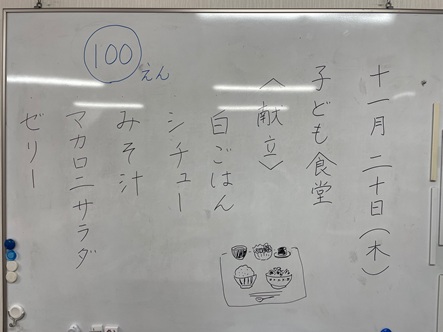 十一月二十日(木)
子ども食堂
〈献立〉
白ごはん
シチュー
みそ汁
マカロニサラダ
ゼリー
100えん